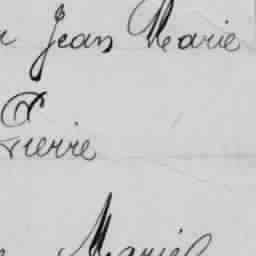 Jean Marie
Pierre
Marie